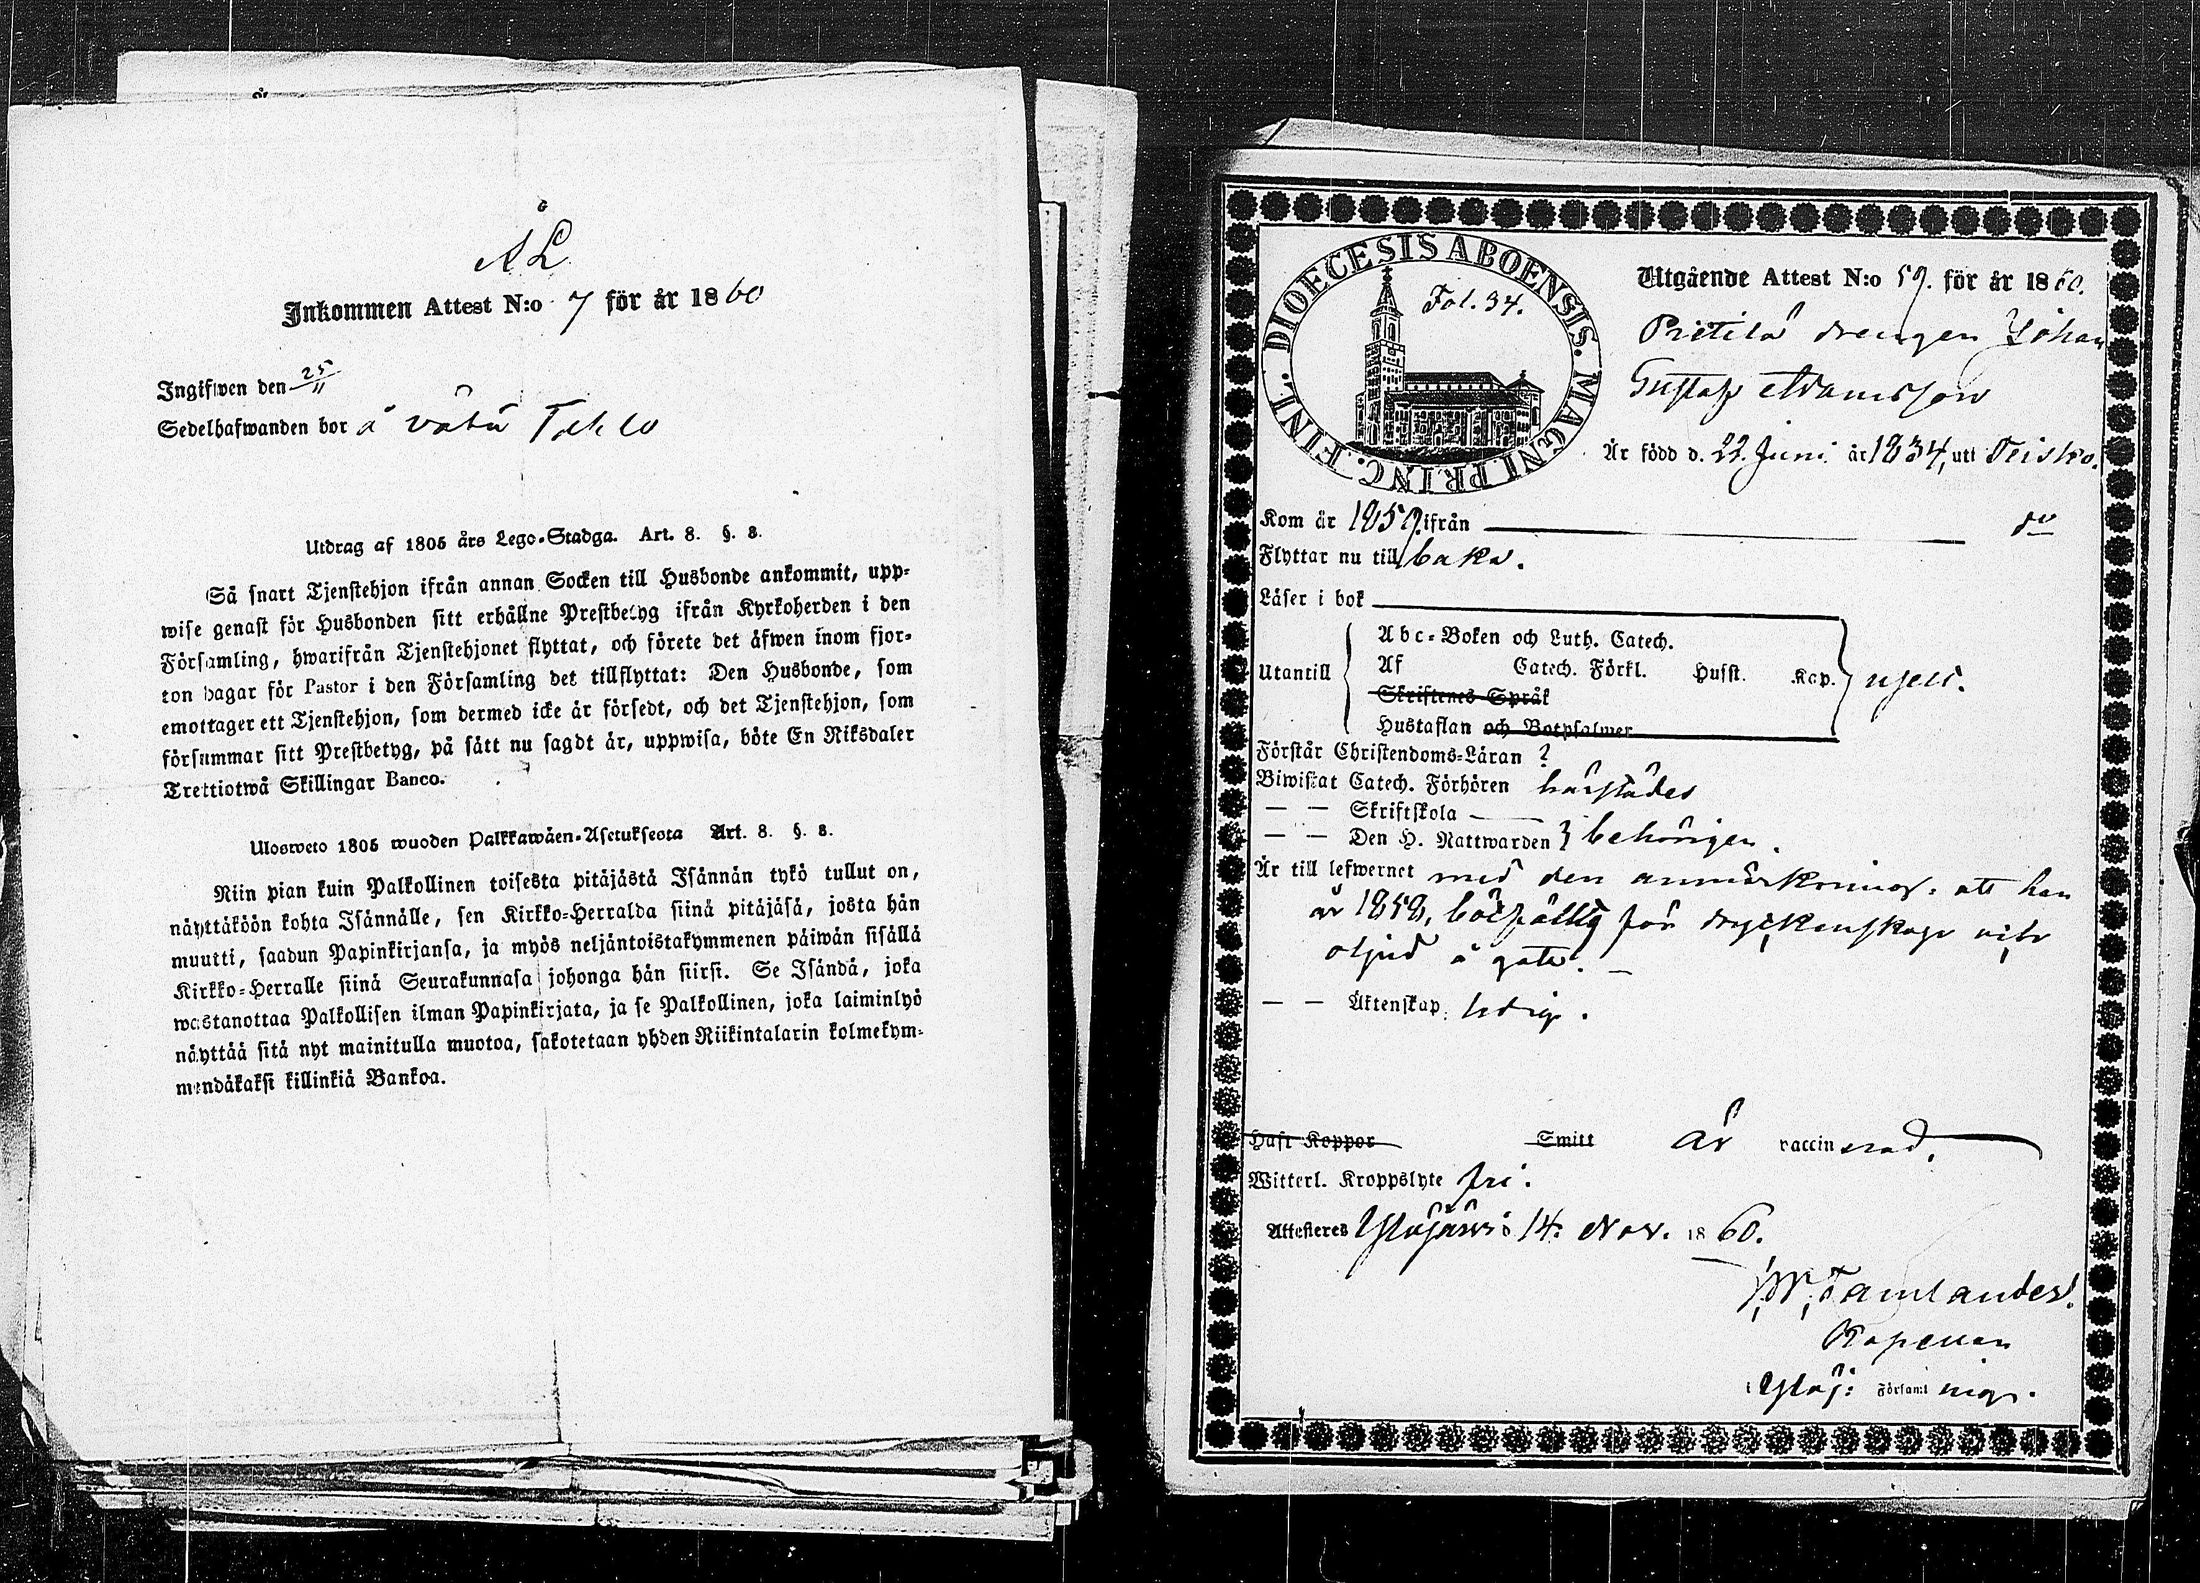 Å L
Inkommen Attest N:o 7 för år 1860
Ingifwen den 25/11
Sedelhafwanden bor å
Utdrag af 1805 års Lego-Stadga. Art. 8. §. 8.
Så snart Tjenstehjon ifrån annan Socken till Husbonde ankommit, upp-
wise genast för Husbonden sitt erhållne Prestbetyg ifrån Kyrkoherden i den
Församling, hwarifrån Tjenstehjonet flyttat, och förete det äfwen inom fjor-
ton dagar för Pastor i den Församling det tillflyttat: Den Husbonde, som
emottager ett Tjenstehjon, som dermed icke är försedt, och det Tjenstehjon, som
försummar sitt Prestbetyg, på sätt nu sagdt är, uppwisa, böte En Riksdaler
Trettiotwå Skillingar Banco.
Ulosweto 1805 wuoden Palkkawäen-Asetuksesta Art. 8. §. 8.
Niin pian kuin Palkollinen toisesta pitäjästä Isännän tykö tullut on,
näyttäköön kohta Isännälle, sen Kirkko-Herralda siinä pitäjäsä, josta hän
muutti, saadun Papinkirjansa, ja myös neljäntoistakymmenen päiwän sisällä
Kirkko-Herralle siinä Seurakunnasa johonga hän siirsi. Se Isändä, joka
wastanottaa Palkollisen ilman Papinkirjata, ja se Palkollinen, joka laiminlyö
näyttää sitä nyt mainitulla muotoa, sakotetaan yhden Riikintalarin kolmekym-
mendäkaksi killinkiä Bankoa.
DIOECESIS ABOENSIS. MAGNI PRINC. FINL.
Fol. 34.
Utgående Attest N:o 59. för år 1860.
drengen Johan
Gustaf Adamsson
Är född d. 22. Juni år 1834, utt Teisko.
Kom år 1859. ifrån do
Flyttar nu till baka.
Läser i bok
Abc-Boken och Luth. Catech.
Utantill Af Catech. Förkl. Husst. Kap.
Skriftenes Språk
Hustaflan och Botpsalmer
Förstår Christendoms-Läran ?
Biwistat Catech. Förhören härstädes
— — Skriftskola —
— — Den H. Nattwarden } behörigen.
Är till lefwernet med den anmärkning: att han
år 1858, bötfälld för dryckenskap och
oljud å gata. —
— — Äktenskap. ledig.
Haft Koppor Smitt är vaccinerad.
Witterl. Kroppslyte fri.
Attesteres Ylöjärvi 14. Nov. 1860.
Tamlander.
Kapellan
Ylöj: Församlings.